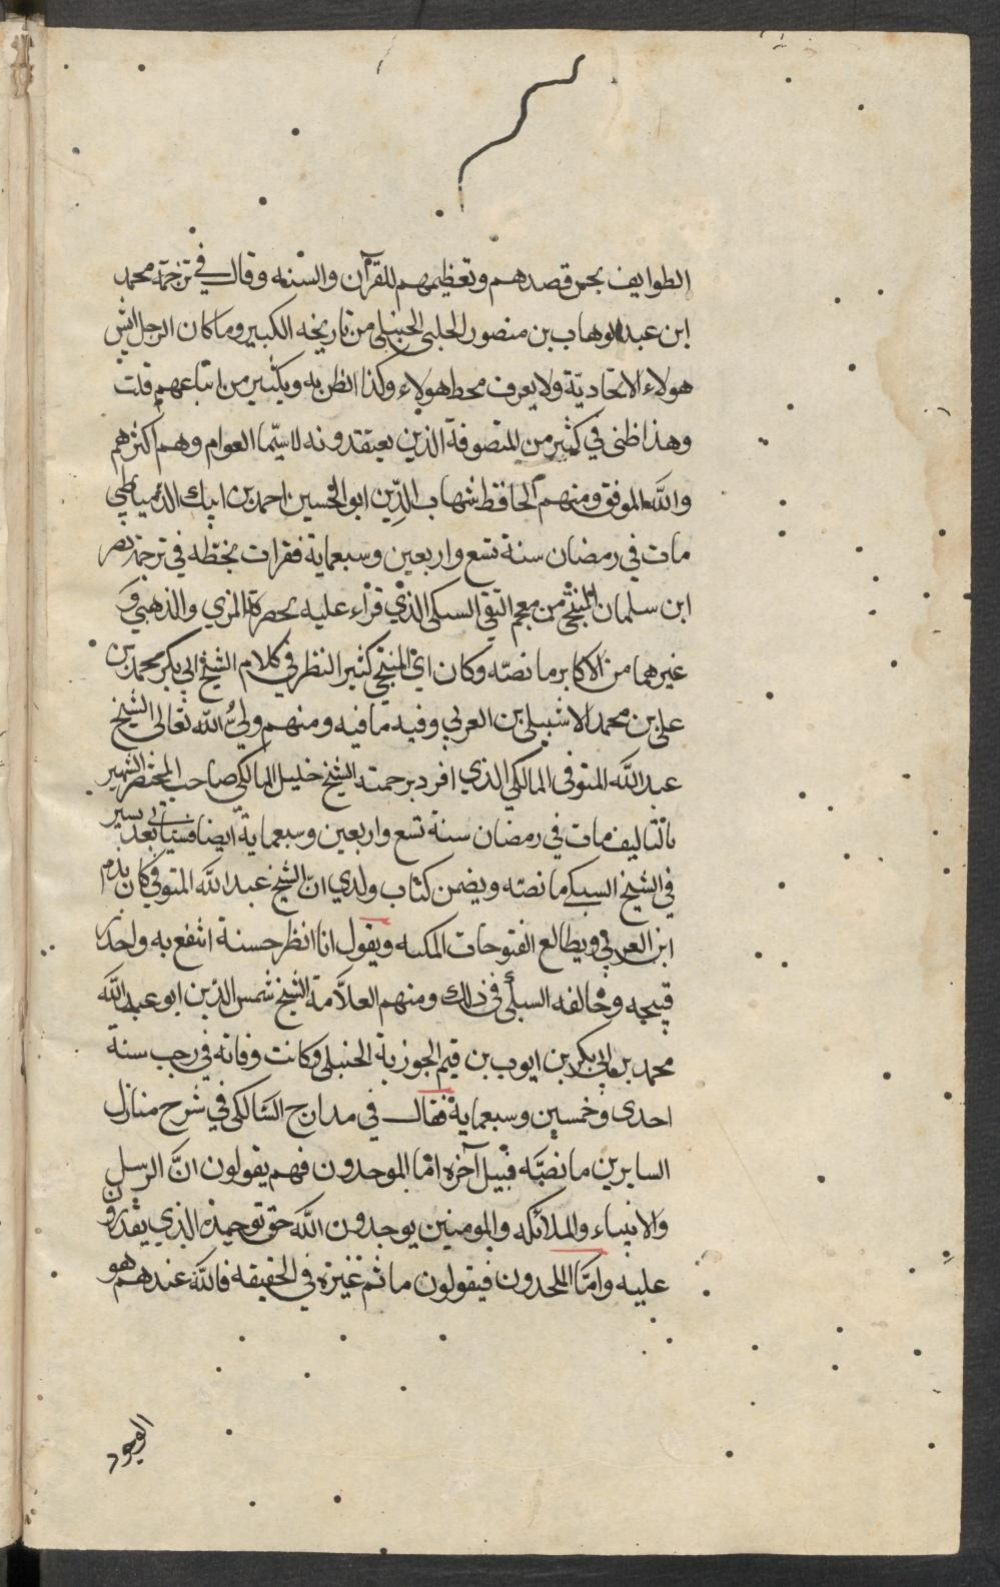 الطوايف بحسن قصدهم وتعظيمهم للقرآن والسنه وقال في ترجمة محمد
ابن عبد الوهاب بن منصور الحلبي الحنبلي من تاريخه الكبير وما كان الرجل ايش
هولاء الاتحاديّة ولا يعرف محط هولاء وكذا اظن به وبكثير من اتباعهم قلت
وهذا ظنى في كثير من المتصوفة الذين يعتقدونه لا سيّما العوام وهم اكثرهم
والله الموفق ومنهم الحافظ شهاب الدِّين ابو الحسين احمد بن ايبك الدمياطي
مات في رمضان سنة تسع واربعين وسبعماية فقرات بخطه في ترجمة نصر
ابن سلمان المنبجي من معجم التقي السبكي الذي قراء عليه بحضرة المزي والذهبي و
غيرهما من الاكابر ما نصّه وكان اي المنبجي كثير النظر في كلام الشيخ ابي بكر محمد بن
على بن محمد الاشبيلى بن العربي وفيه ما فيه ومنهم ولي الله تعالى الشيخ
عبد الله المتوفى المالكي الذي افرد برحمته الشيخ خليل المالكي صاحب المختصر الشهير
بالتاليف مات في رمضان سنة تسع واربعين وسبعماية ايضا فسياتى بعد يسير
في الشيخ السبكي ما نصّه ويضمن كتاب ولدي انّ الشيخ عبد الله المتوفى كان يذم
ابن العربي ويطالع الفتوحات المكيه ويقول انا انظر حسنة انتفع به واحذر
قبيحه وخالفه السبكي في ذلك ومنهم العلاّمة الشيخ شمس الدّين ابو عبد الله
محمد بن ابي بكر بن ايوب بن قيم الجوزية الحنبلى وكانت وفاته في رجب سنة
احدى وخمسين وسبعماية فقال في مدارج السّالكى في شرح منازل
السايرين ما نصّه قبيل آخره امّا الموحدون فهم يقولون انَّ الرسل
والانبياء والملائكه والمومنين يوحدون الله حق توحيده الذي يقدرون
عليه وامّا الملحدون فيقولون ما ثم غيره في الحقيقه فالله عندهم هو
الوجود